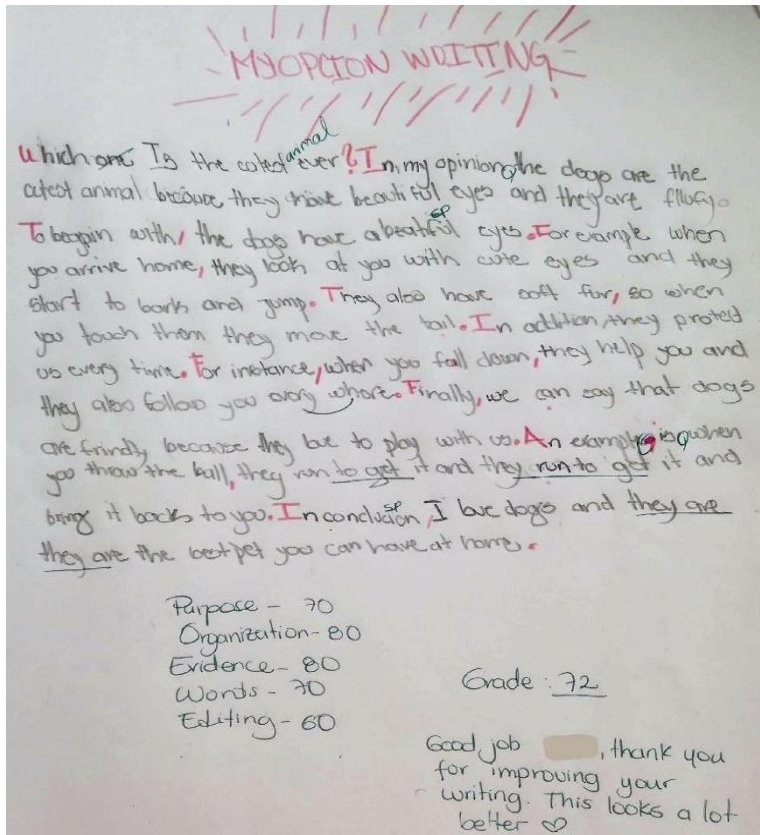 MY OPCION WRITTING
animal
Which one Is the cutest ever? In, my opinion, the dogs are the
cutest animal because they have beautiful eyes and they are fllufy.
sp
To beggin with, the dogs have a beatifiul eyes. For example when
you arrive home, they look at you with cute eyes and they
start to bark and jump. They also have soft fur, so when
you touch them they move the tail. In addition, they protect
us every time. For instance, when you fall down, they help you and
they also follow you every where. Finally, we can say that dogs
are frindly because they love to play with us. An example is when
you throw the ball, they run to get it and they run to get it and
sp
bring it back to you. In conclusion, I love dogs and they are
they are the best pet you can have at home.
Purpose - 70
Organization - 80
Evidence - 80
Words - 70
Editing - 60
Grade : 72
Good job , thank you
for improving your
writing. This looks a lot
better ♡